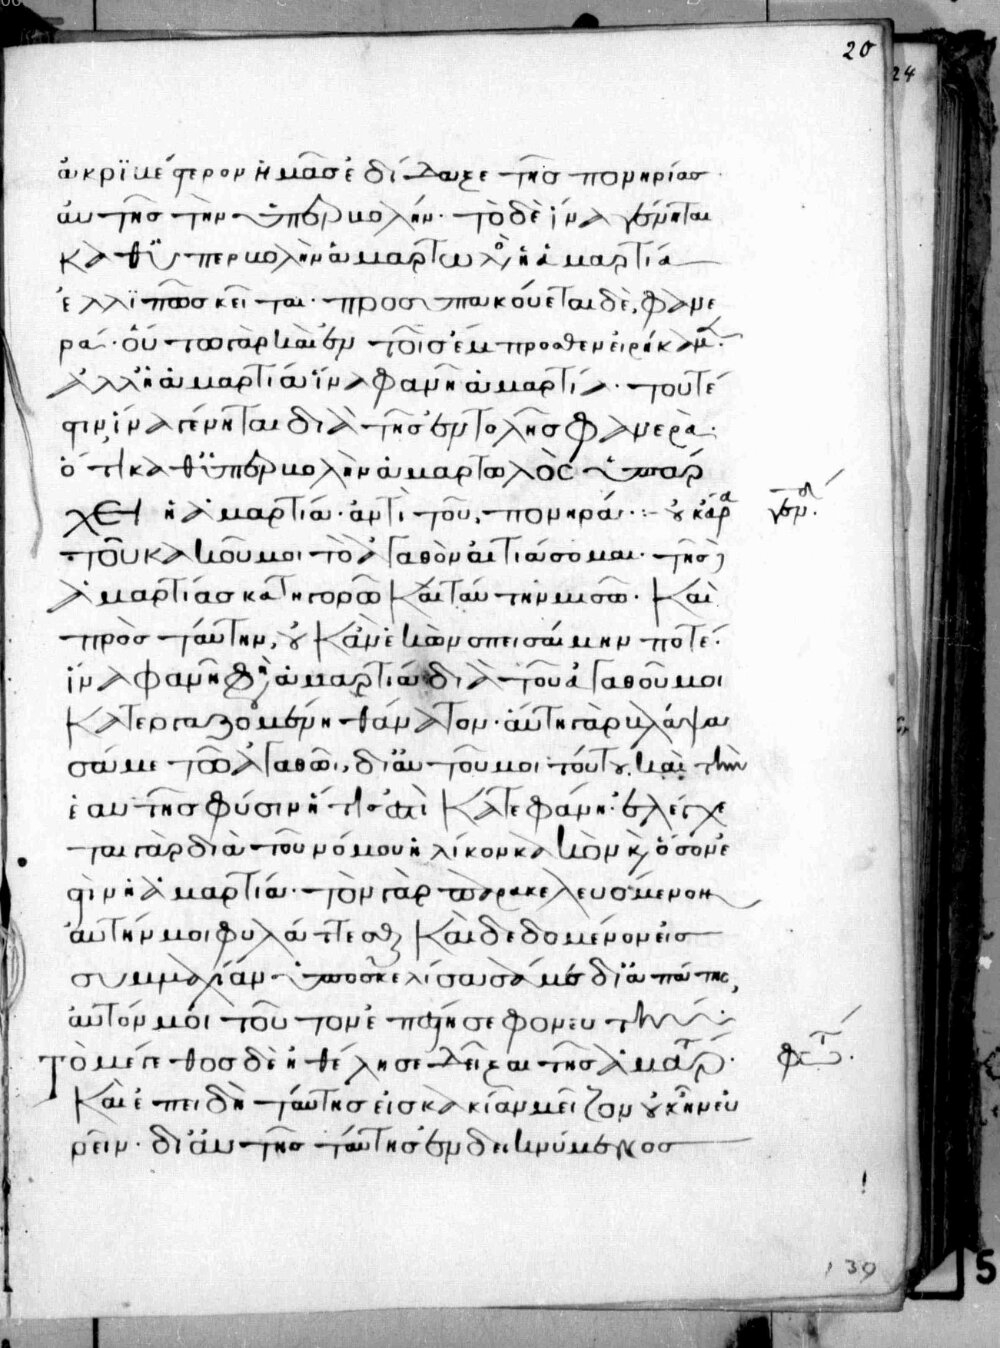 20
24
ἀκριβέστερον ἡμᾶς ἐδίδαξε τῆς πονηρίας
αὐτῆς τὴν ὑπερβολήν· τὸ δὲ ἵνα γένηται
καθ' ὑπερβολὴν ἁμαρτωλὸς ἡ ἁμαρτία
ἐλλιπῶς κεῖται· προσυπακούεται δὲ, φανε
ρά· οὕτω γὰρ καὶ ἐν τοῖς ἔμπροσθεν εἰρήκαμεν·
ἀλλ' ἡ ἁμαρτία ἵνα φανῇ ἁμαρτία· τουτέ
στιν ἵνα γένηται διὰ τῆς ἐντολῆς φανερὰ·
ὅτι καθ' ὑπερβολὴν ἁμαρτωλὸς ὑπάρ
χει ἡ ἁμαρτία· ἀντὶ τοῦ, πονηρά· οὐ γάρ
τοῦ κακοῦ μοι τὸ ἀγαθὸν αἰτιάσομαι· τῆς δὲ
ἁμαρτίας κατηγορῶ καὶ ταύτην μισῶ· καὶ
πρὸς ταύτην, οὐκ ἂν ἑκὼν σπεισαίμην ποτέ·
ἵνα φανῇ φη ἡ ἁμαρτία διὰ τοῦ ἀγαθοῦ μοι
κατεργαζομένη θάνατον· αὕτη γὰρ βλάψα
σά με τῶ ἀγαθῶι, δι' αὐτοῦ μοι τούτου καὶ τὴν
ἑαυτῆς φύσιν ἥτις ἐστὶ κατεφάνη· ἐλέγχε
ται γὰρ διὰ τοῦ νόμου ἡλίκον κακὸν καὶ ὅσον ἐ
στὶν ἡ ἁμαρτία· τὸν γὰρ παρακελευσάμενον
αὐτήν μοι φυλάττεσθαι καὶ δεδομένον εἰς
συμμαχίαν ὑποσκελίσασά με δι' ἀπάτης,
αὐτόν μοι τοῦτον ἐποίησε φονευτὴν·
τὸ μέγεθος δὲ ἠθέλησε δεῖξαι τῆς ἁμαρτ·
καὶ ἐπειδὴ ταύτης εἰς κακίαν μεῖζον οὐκ ἦν εὑ
ρεῖν· δι' αὐτῆς ταύτης ἐνδεικνύμενος
139
5